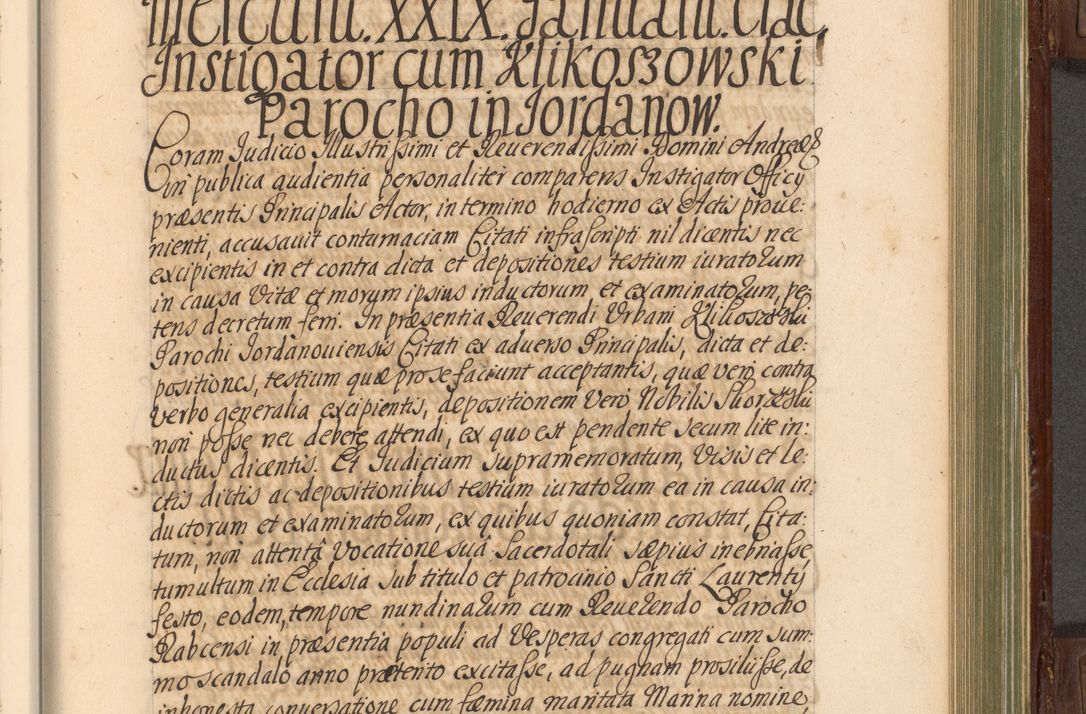 Mercurii. XXIX. Januarii. Ciac.
Instigator cum Klikoszowski
Parocho in Jordanow.
Coram Judicio Illustrissimi et Reuerendissimi Domini Andreæ &
in publica audientia personaliter comparens Instigator Officij
præsentis Principalis Actor, in termino hodierno ex Actis proue:
nienti, accusauit contumaciam Citati infrascripti nil dicentis nec
excipientis in et contra dicta et depositiones testium iuratorum
in causa Vitæ et morum ipsius inductorum et examinatorum, pe:
tens decretum ferri. In præsentia Reuerendi Vrbani Klikoszowski
Parochi Jordanouiensis Citati ex aduerso Principalis, dicta et de:
positiones, testium quæ pro se faciunt acceptantis, quæ vero contra
verbo generalia excipientis, depositionem vero Nobilis Skorzewski
non posse nec debere attendi, ex quo est pendente secum lite in:
ductus dicentis. Et Judicium supramemoratum, Visis et le:
ctis dictis ac depositionibus testium iuratorum ea in causa in:
ductorum et examinatorum, ex quibus quoniam constat, Cita:
tum, non attenta vocatione sua Sacerdotali sæpius inebriasse
tumultum in Ecclesia sub titulo et patrocinio Sancti Laurentij
festo, eodem, tempore nundinarum cum Reuerendo Parocho
Rabcensi in præsentia populi ad Vesperas congregati cum sum:
mo scandalo anno præterito excitasse, ad pugnam prosiliisse, de
inhonesta conuersatione cum fæmina maritata Marina nomine,